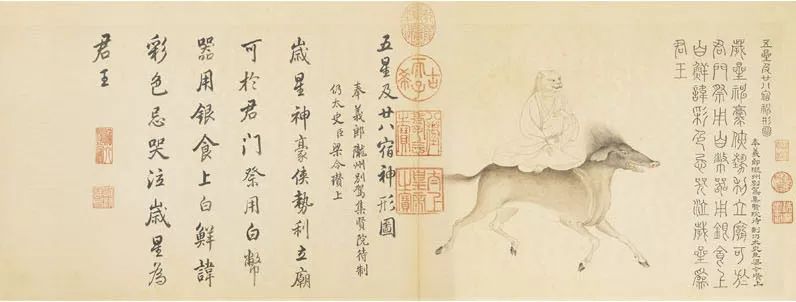 五星及廿八宿神形圖
奉義郎隴州別駕集賢院待制仍太史臣梁令瓚上
歲星神豪俠勢利立廟可於
君門祭用白幣器用銀食上
白鮮諱彩色忌哭泣歲星為
君王
古希天子
八徵耄念之寶
太上皇帝之寶
五星及廿八宿神形圖
奉義郎隴州別駕集賢院待制
仍太史臣梁令瓚上
歲星神豪俠勢利立廟
可於君門祭用白幣
器用銀食上白鮮諱
彩色忌哭泣歲星為
君王